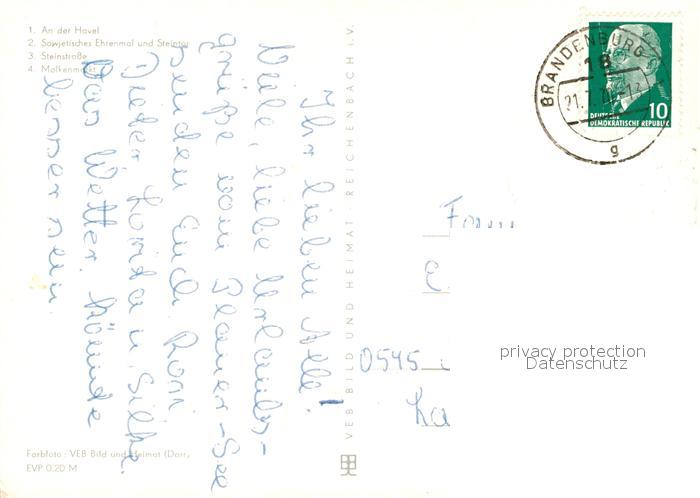 1. An der Havel
2. Sowjetisches Ehrenmal und Steintor
3. Steinstraße
4. Molkenmarkt
Ihr lieben Alle!
Viele, liebe Urlaubs-
grüße vom Plauer-See
senden Euch Roni
Dieter, Lorita u. Silke.
Das Wetter könnte
besser sein.
Farbfoto: VEB Bild und Heimat (Darr)
EVP 0.20 M
VEB BILD UND HEIMAT REICHENBACH I.V.
BRANDENBURG
18
21.7.
g
10
DEUTSCHE
DEMOKRATISCHE REPUBLIK
Fam
0545
privacy protection
Datenschutz